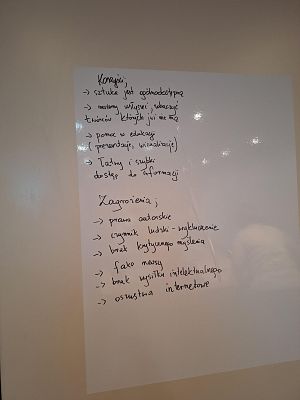 Korzyści;
→ sztuka jest ogólnodostępna
→ możemy usłyszeć, zobaczyć
twórców których już nie ma
→ pomoc w edukacji
(prezentacje, wizualizacje)
→ Ładny i szybki
dostęp do informacji
Zagrożenia;
→ prawa autorskie
→ czynnik ludzki - wykluczenie
→ brak krytycznego myślenia
→ fake newsy
→ brak wysiłku intelektualnego
→ oszustwa internetowe